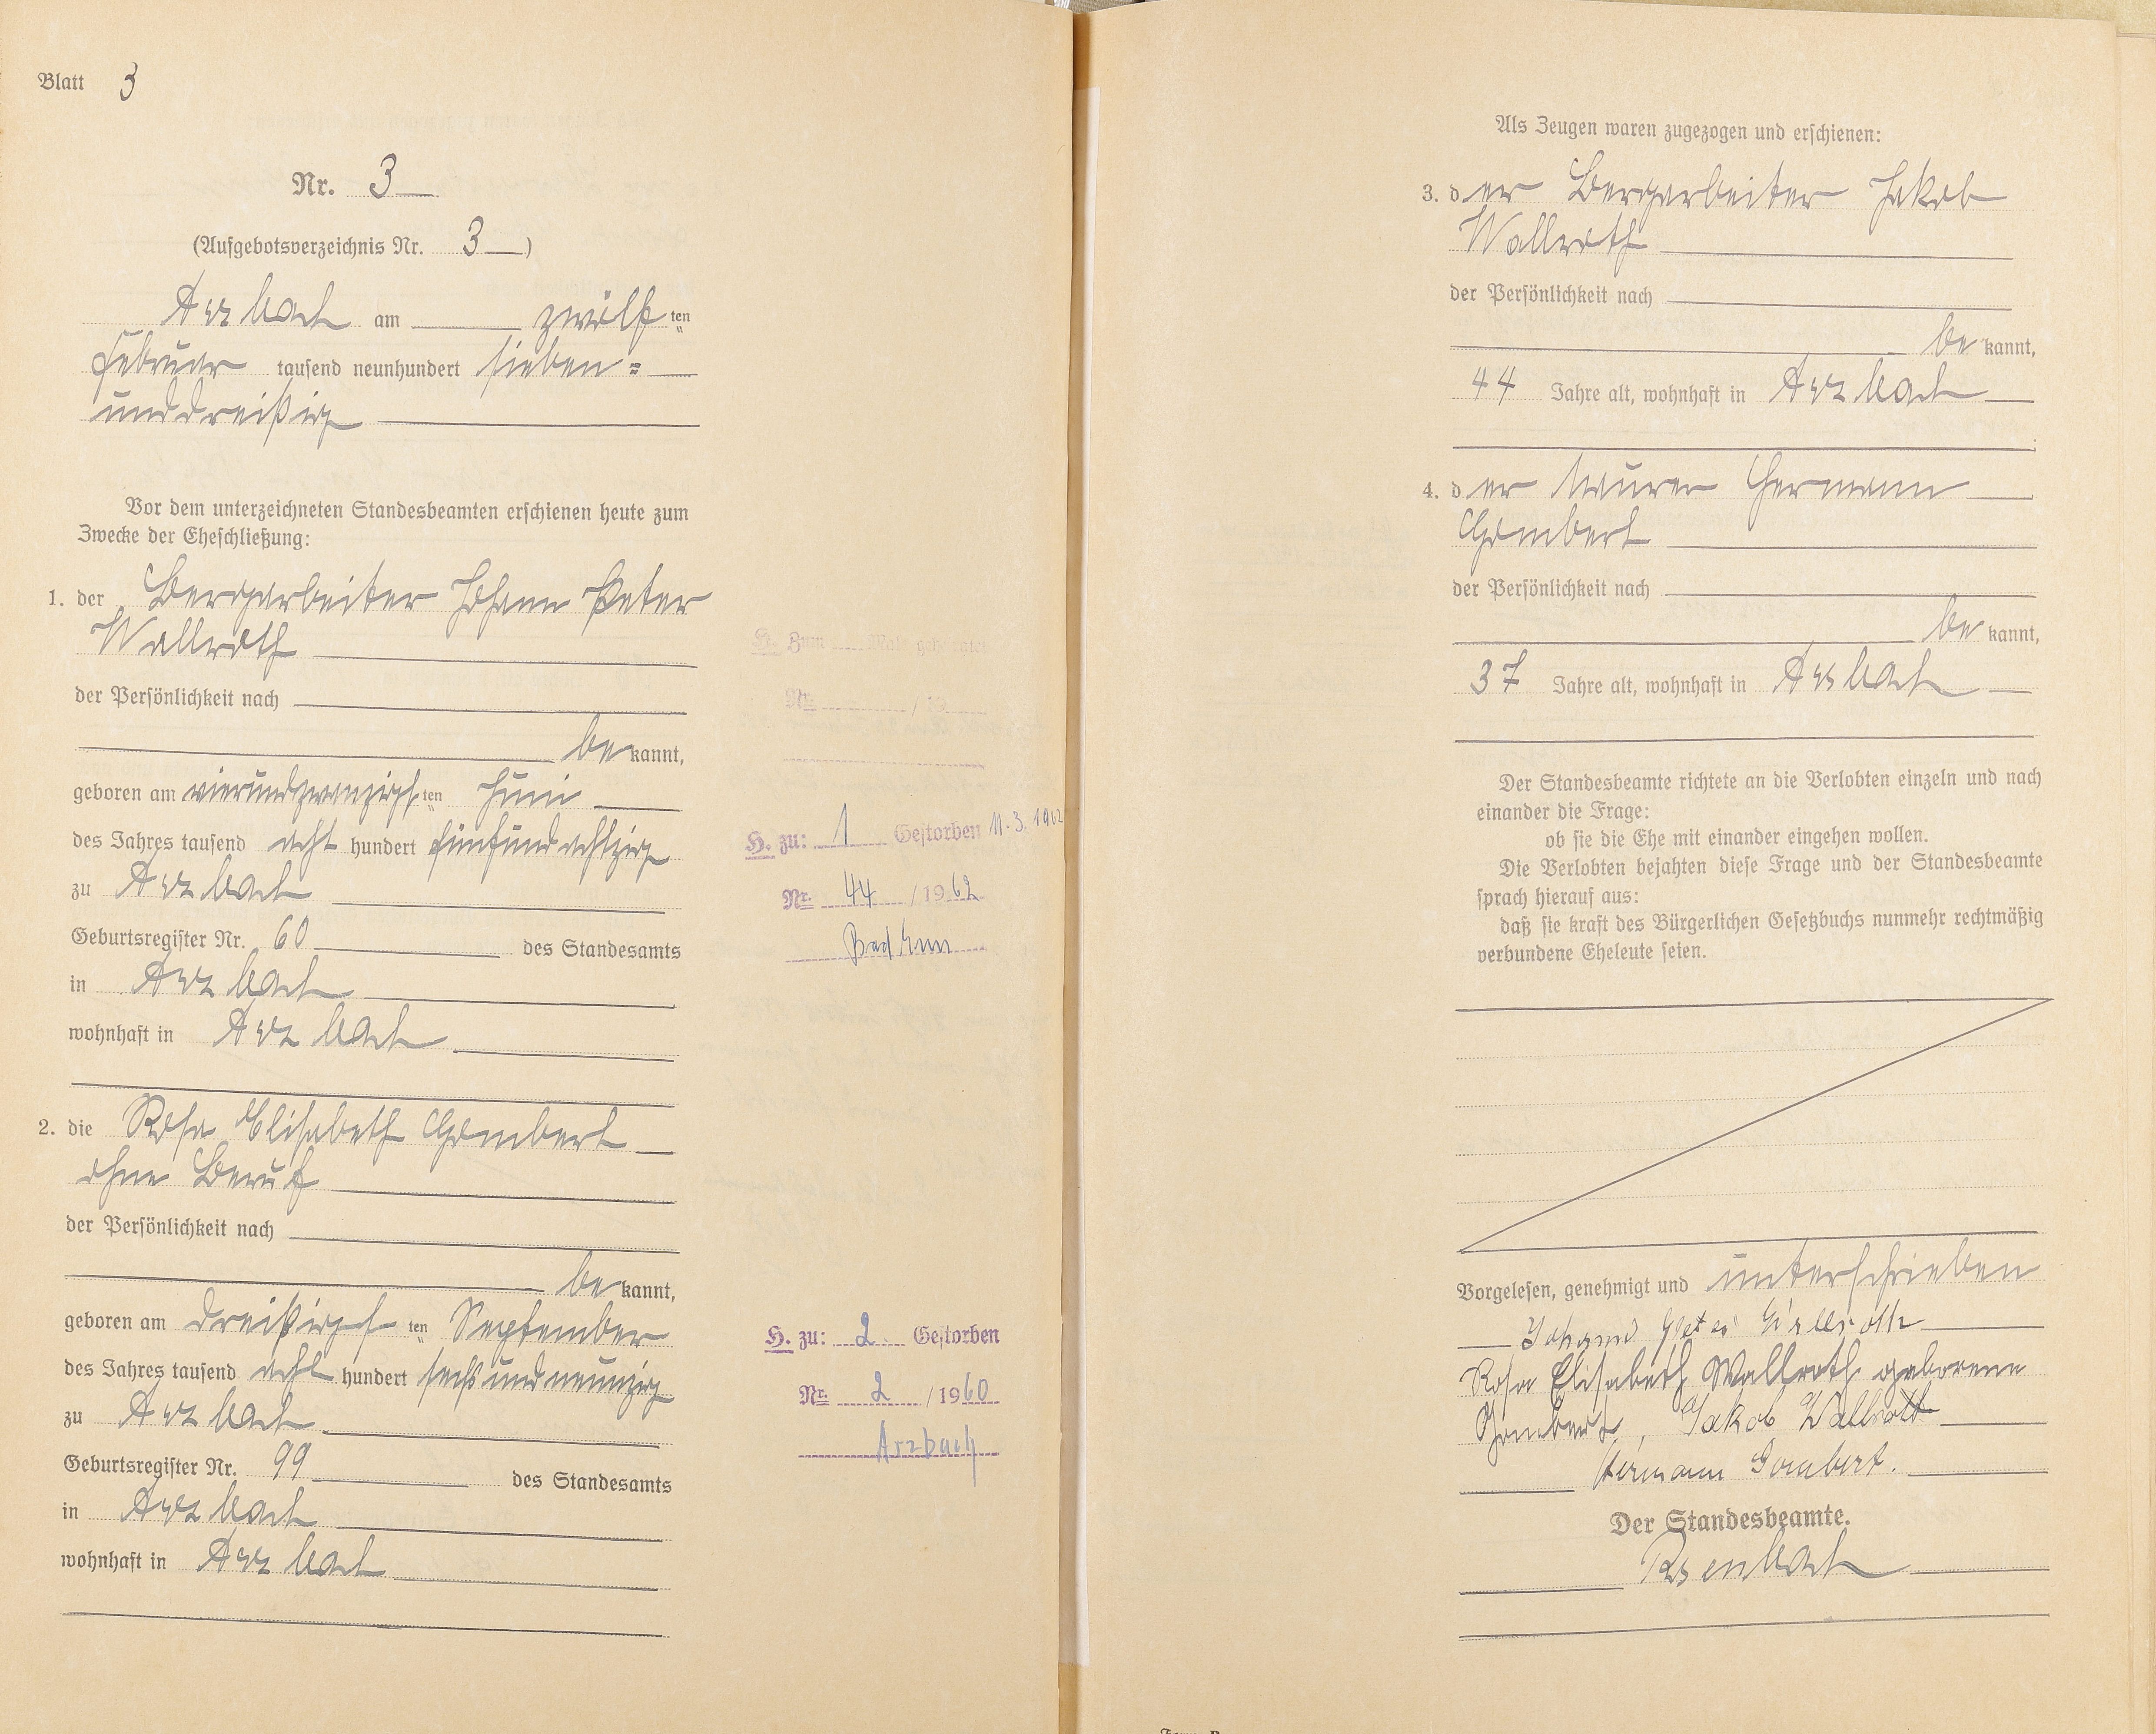 Blatt 3
Nr. 3
(Aufgebotsverzeichnis Nr. 3)
Arzbach am zwölften
Februar tausend neunhundert sieben=
unddreißig
Vor dem unterzeichneten Standesbeamten erschienen heute zum
Zwecke der Eheschließung:
1. der Bergarbeiter Johann Peter
Wallroth
der Persönlichkeit nach
bekannt,
geboren am vierundzwanzigsten Juni
des Jahres tausend acht hundert fünfundachtzig
zu Arzbach
Geburtsregister Nr. 60 des Standesamts
in Arzbach
wohnhaft in Arzbach
2. die Rosa Elisabeth Gombert
ohne Beruf
der Persönlichkeit nach
bekannt,
geboren am dreißigsten September
des Jahres tausend acht hundert sechsundneunzig
zu Arzbach
Geburtsregister Nr. 99 des Standesamts
in Arzbach
wohnhaft in Arzbach
H. Zum Male geheiratet
Nr. / 19
H. zu: 1 Gestorben 11.3.1962
Nr. 44 / 1962
Bad Ems
H. zu: 2. Gestorben
Nr. 2 / 1960
Arzbach
Als Zeugen waren zugezogen und erschienen:
3. der Bergarbeiter Jakob
Wallroth
der Persönlichkeit nach
bekannt,
44 Jahre alt, wohnhaft in Arzbach
;
4. der Maurer Hermann
Gombert
der Persönlichkeit nach
bekannt,
37 Jahre alt, wohnhaft in Arzbach
Der Standesbeamte richtete an die Verlobten einzeln und nach
einander die Frage:
ob sie die Ehe mit einander eingehen wollen.
Die Verlobten bejahten diese Frage und der Standesbeamte
sprach hierauf aus:
daß sie kraft des Bürgerlichen Gesetzbuchs nunmehr rechtmäßig
verbundene Eheleute seien.
Vorgelesen, genehmigt und unterschrieben
Johann Peter Wallroth
Rosa Elisabeth Wallroth geborene
Gombert, Jakob Wallroth
Hermann Gombert.
Der Standesbeamte.